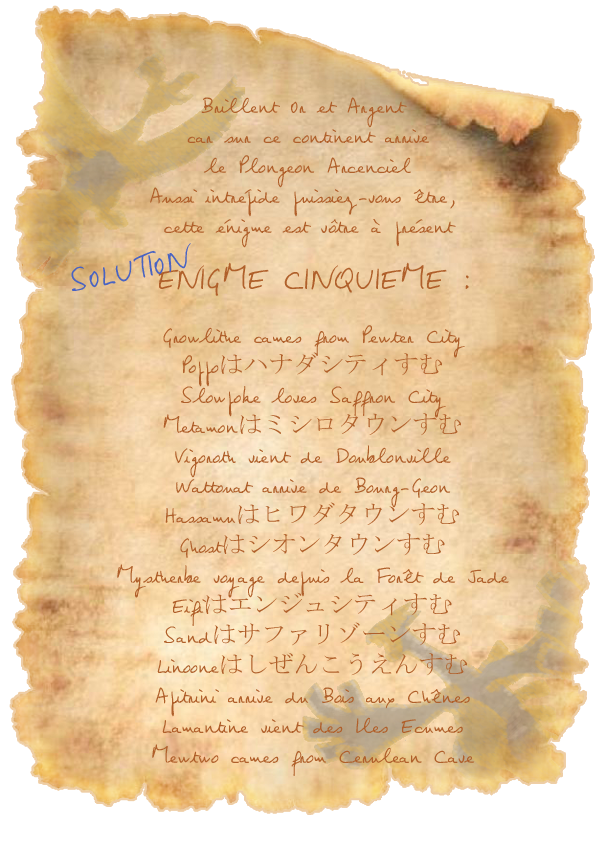 Brillent Or et Argent
car sur ce continent arrive
le Plongeon Arcenciel
Aussi intrépide puissiez-vous être,
cette énigme est vôtre à présent
SOLUTION
ENIGME CINQUIEME :
Growlithe cames from Pewter City
Poppoはハナダシティすむ
Slowpoke loves Saffron City
Metamonはミシロタウンすむ
Vigoroth vient de Doublonville
Wattouat arrive de Bourg-Geon
Hassamuはヒワダタウンすむ
Ghostはシオンタウンすむ
Mystherbe voyage depuis la Forêt de Jade
Eifiはエンジュシティすむ
Sandはサファリゾーンすむ
Linooneはしぜんこうえんすむ
Apitrini arrive du Bois aux Chênes
Lamantine vient des Iles Ecumes
Mewtwo cames from Cerulean Cave